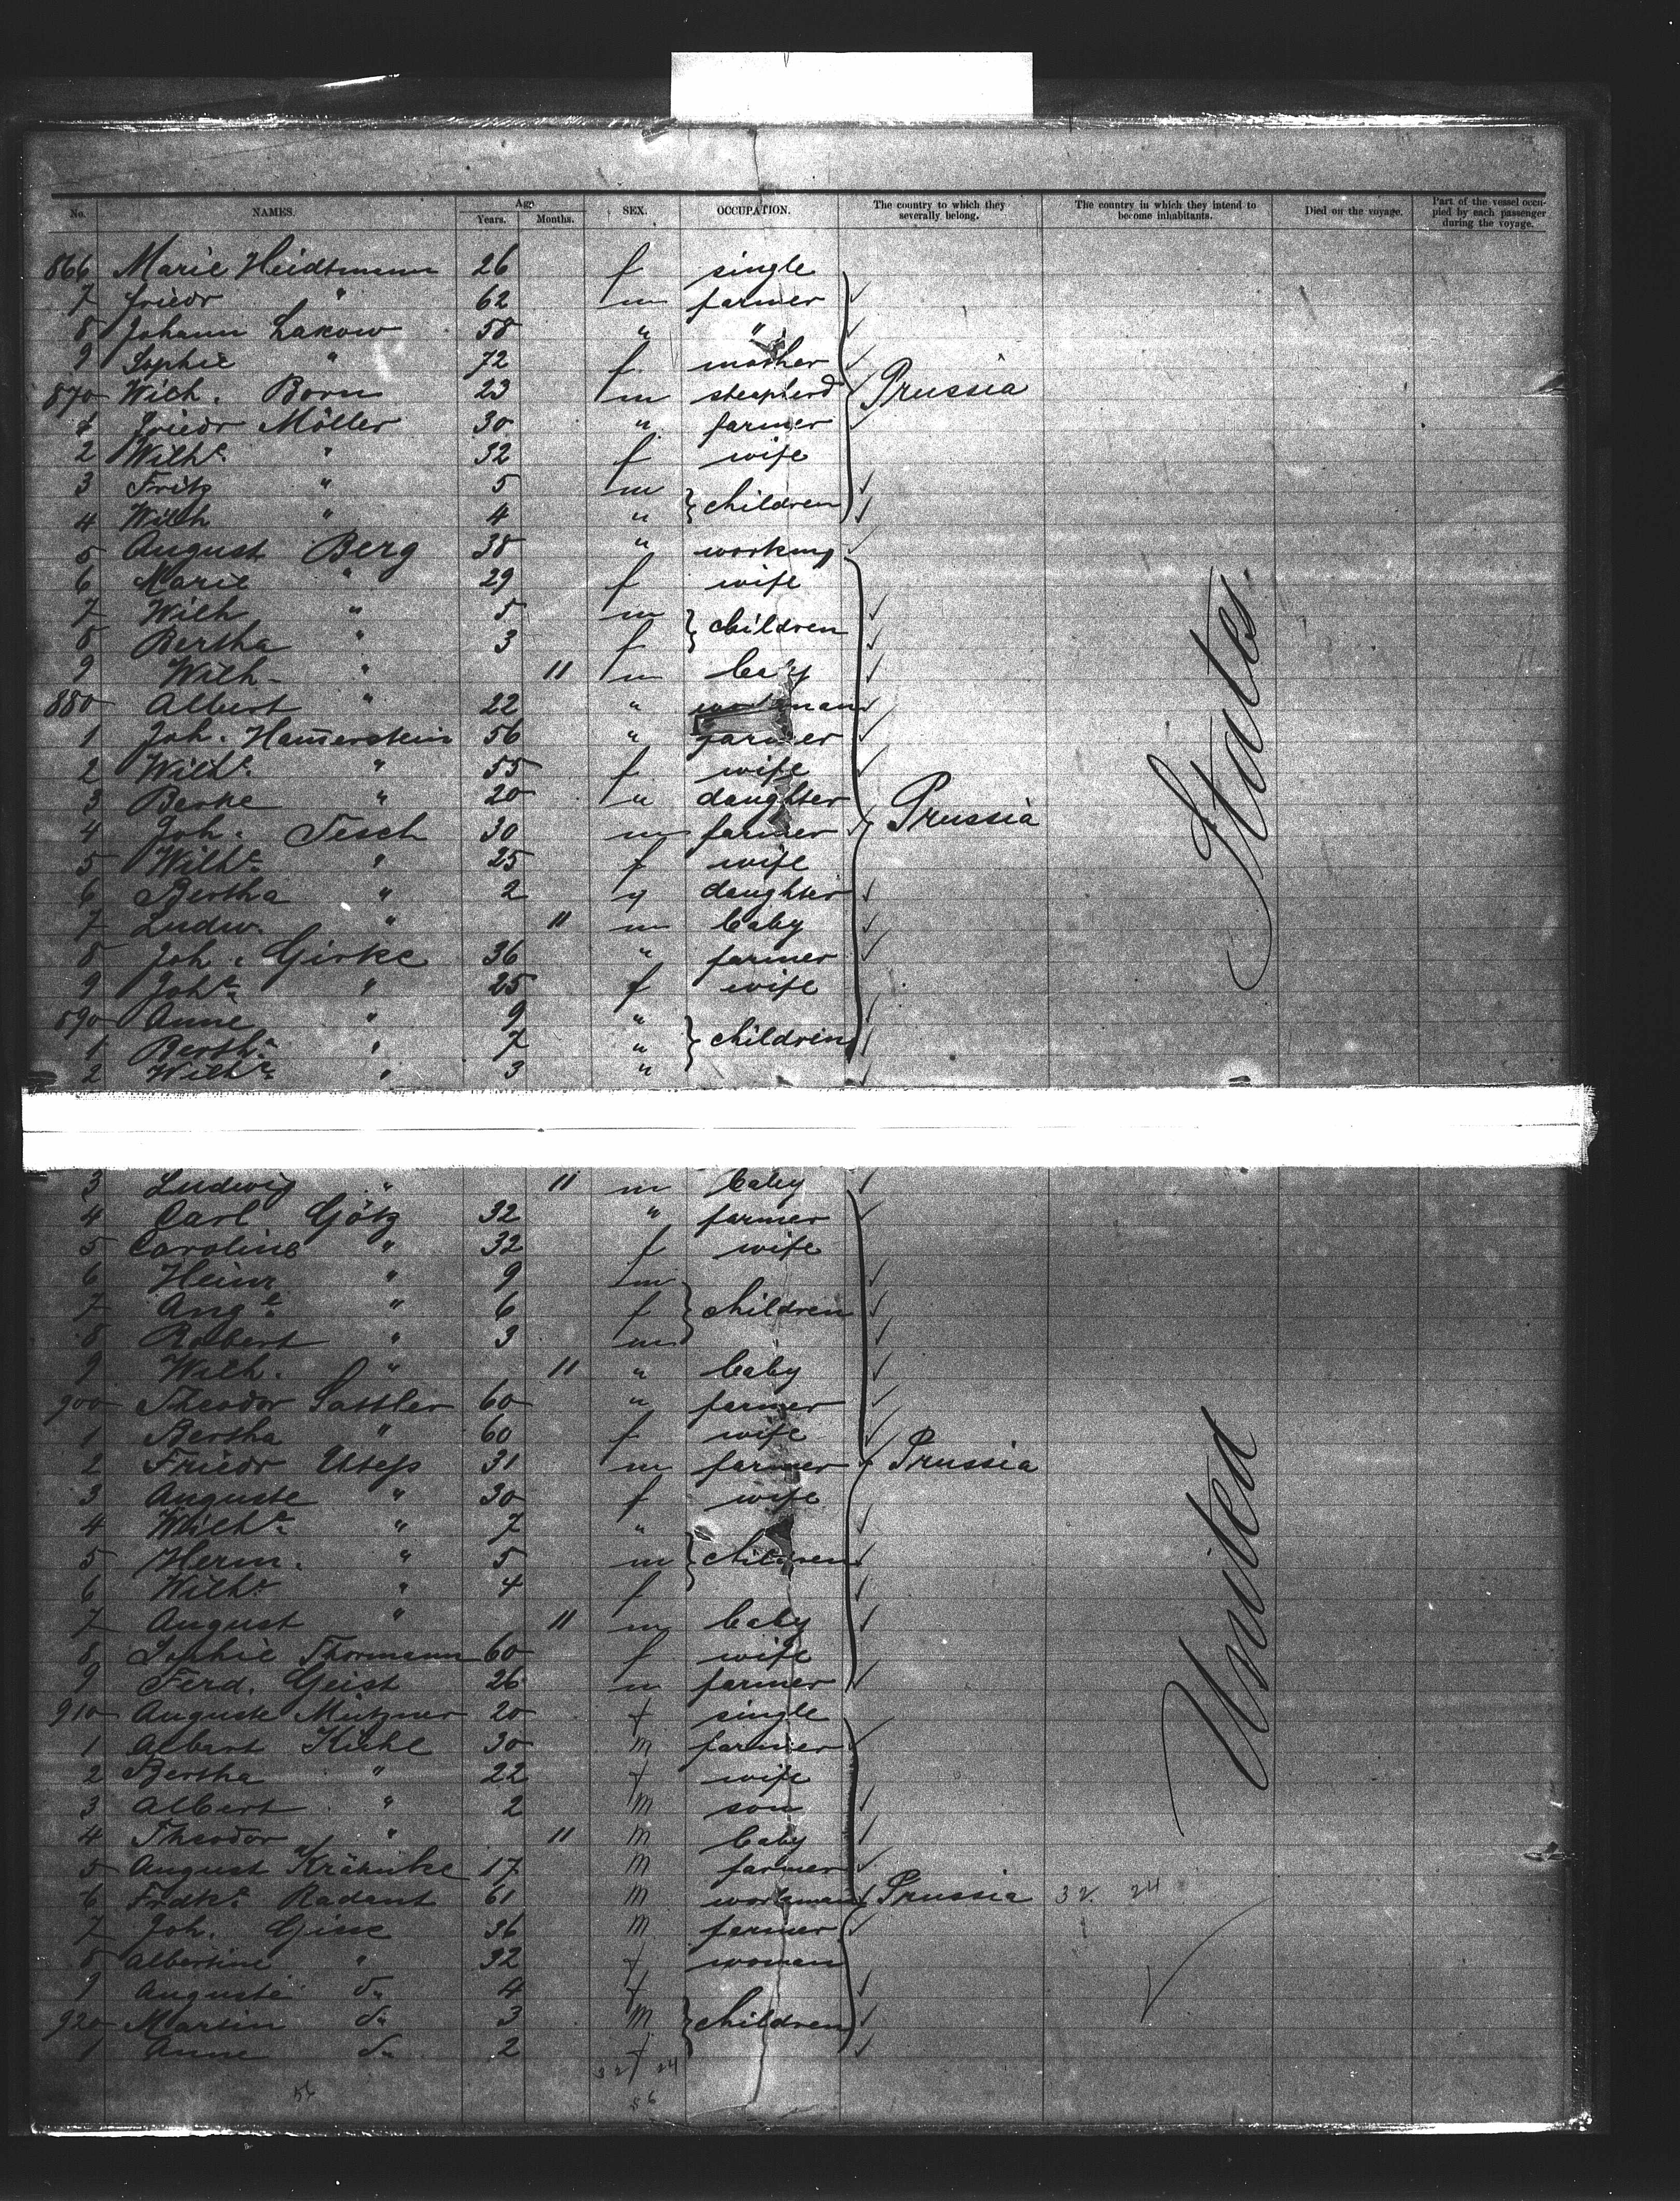 No. NAMES. Age Years. Months. SEX. OCCUPATION. The country to which they severally belong. The country in which they intend to become inhabitants. Died on the voyage. Part of the vessel occupied by each passenger during the voyage.
866 Marie Heidtmann 26 f single
7 Friedr " 62 m farmer
8 Johann Lakow 58 " "
9 Sophie " 72 f mother
870 Wilh. Born 23 m sheapherd Prussia
1 Friedr Möller 30 " farmer
2 Wilhe " 32 f wife
3 Fritz " 5 m
4 Wilh " 4 " children
5 August Berg 38 " working
6 Marie " 29 f wife
7 Wilh " 5 m
8 Bertha " 3 f children
9 Wilh " 11 m baby
880 Albert " 22 " workman
1 Joh. Ham̄erstein 56 " farmer
2 Wilhe " 55 f wife
3 Berke " 20 " daughter
4 Joh. Tesch 30 m farmer Prussia
5 Wilhe " 25 f wife
6 Bertha " 2 " daughter
7 Ludw. " 11 m baby
8 Joh. Girke 36 " farmer
9 Johe " 25 f wife
890 Anne " 9 "
1 Berth. " 7 " children
2 Wilhe " 3 "
States.
3 Ludwig " 11 m baby
4 Carl Götz 32 " farmer
5 Caroline " 32 f wife
6 Heinr " 9 m
7 Auge " 6 f children
8 Robert " 3 m
9 Wilh. " 11 " baby
900 Theodor Sattler 60 " farmer
1 Bertha " 60 f wife
2 Friedr Utess 31 m farmer Prussia
3 Auguste " 30 f wife
4 Wilhe " 7 "
5 Herm. " 5 m children
6 Wilhe " 4 f
7 August " 11 m baby
8 Sophie Thormann 60 f wife
9 Ferd. Geist 26 m farmer
910 Auguste Mützner 20 f single
1 Albert Kühl 30 m farmer
2 Bertha " 22 f wife
3 Albert " 2 m son
4 Theodor " 11 m baby
5 August Krähnke 17 m farmer
6 Frdke Radant 61 m workman Prussia 32 24
7 Joh. Gise 36 m farmer
8 Albertine " 32 f woman
9 Auguste do 4 f
920 Martin do 3 m children
1 Anne do 2 f
32 24
56 56
United